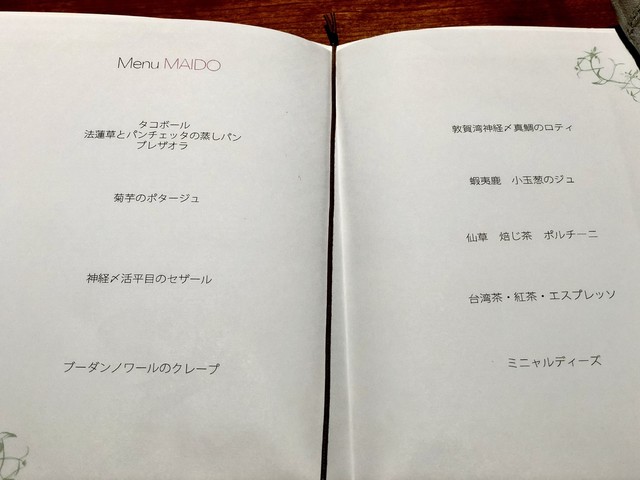 Menu MAIDO
タコボール
法蓮草とパンチェッタの蒸しパン
ブレザオラ
菊芋のポタージュ
神経〆活平目のセザール
ブーダンノワールのクレープ
敦賀湾神経〆真鯛のロティ
蝦夷鹿　小玉葱のジュ
仙草　焙じ茶　ポルチーニ
台湾茶・紅茶・エスプレッソ
ミニャルディーズ